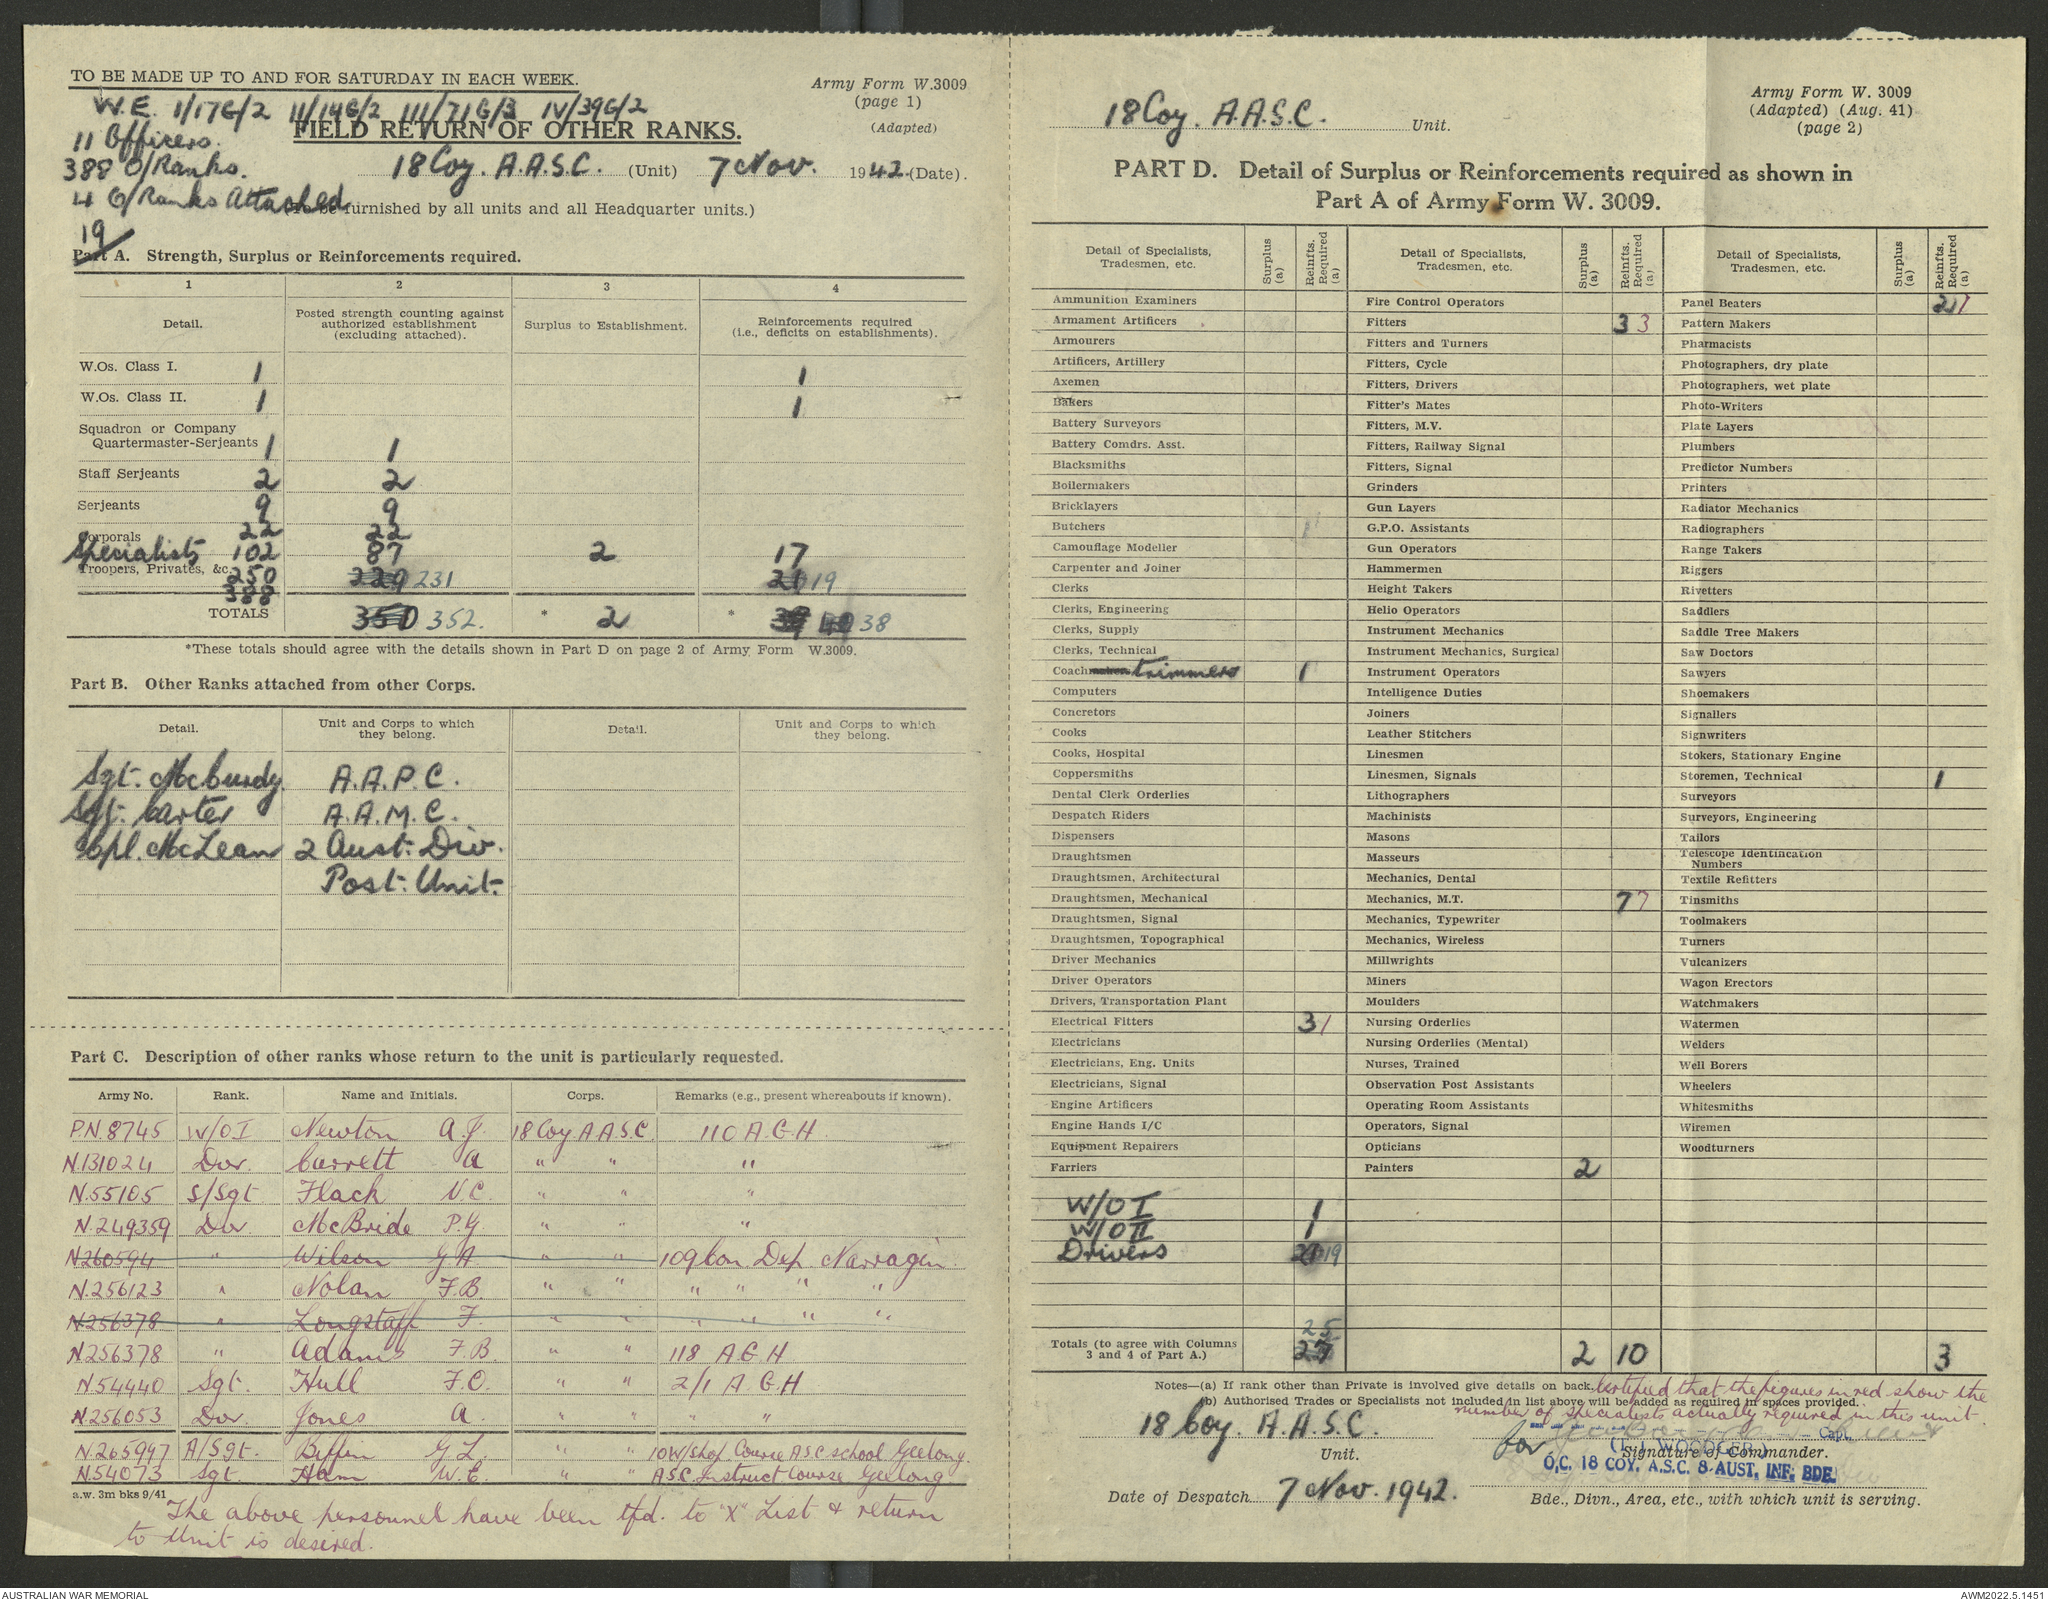 TO BE MADE UP TO AND FOR SATURDAY IN EACH WEEK.
Army Form W.3009
(page 1)
(Adapted)
W.E. I/17G/2 II/14G/2 III/71G/3 IV/39G/2
FIELD RETURN OF OTHER RANKS.
11 Officers.
388 O/Ranks.
4 O/Ranks Attached
19
18 Coy. A.A.S.C. (Unit) 7 Nov. 1942. (Date).
(To be furnished by all units and all Headquarter units.)
Part A. Strength, Surplus or Reinforcements required.
1 2 3 4
Detail. Posted strength counting against authorized establishment (excluding attached). Surplus to Establishment. Reinforcements required (i.e., deficits on establishments).
W.Os. Class I. 1 1
W.Os. Class II. 1 1
Squadron or Company
Quartermaster-Serjeants 1 1
Staff Serjeants 2 2
Serjeants 9 9
Corporals 22 22
Specialists 102 87 2 17
Troopers, Privates, &c. 250 229 231 21 19
388
TOTALS 350 352. * 2 * 39 40 38
*These totals should agree with the details shown in Part D on page 2 of Army Form W.3009.
Part B. Other Ranks attached from other Corps.
Detail. Unit and Corps to which they belong. Detail. Unit and Corps to which they belong.
Sgt. McCurdy. A.A.P.C.
Sgt. Carter A.A.M.C.
Cpl. McLean 2 Aust. Div.
Post. Unit.
Part C. Description of other ranks whose return to the unit is particularly requested.
Army No. Rank. Name and Initials. Corps. Remarks (e.g., present whereabouts if known).
P.N.8745 W/OI Newton A.J. 18 Coy A.A.S.C. 110 A.G.H
N.131024 Dvr. Currett A " " "
N.55105 S/Sgt Flack N.C. " " "
N.249359 Dvr McBride P.G. " " "
N260594 " Wilson G A. " " 109 Con Dep. Narragin.
N.256123 " Nolan F.B. " " " " " "
N256378 " Longstaff F. " " " " " "
N256378 " Adams F.B. " " 118 A.G.H
N54440 Sgt. Hull F.O. " " 2/1 A.G.H
N.256053 Dvr. Jones A. " " " "
N.265997 A/Sgt. Biffin G.L. " " 10 W/Shop Course A.S.C. School Geelong.
N.54073 Sgt. Ham W.E. " " A.S.C. Instruct Course Geelong
a.w. 3m bks 9/41
The above personnel have been tfd. to "X" List & return
to Unit is desired.
18 Coy. A.A.S.C. Unit.
Army Form W. 3009
(Adapted) (Aug. 41)
(page 2)
PART D. Detail of Surplus or Reinforcements required as shown in
Part A of Army Form W. 3009.
Detail of Specialists, Tradesmen, etc. Surplus (a) Reinfts. Required (a)
Ammunition Examiners
Armament Artificers
Armourers
Artificers, Artillery
Axemen
Bakers
Battery Surveyors
Battery Comdrs. Asst.
Blacksmiths
Boilermakers
Bricklayers
Butchers
Camouflage Modeller
Carpenter and Joiner
Clerks
Clerks, Engineering
Clerks, Supply
Clerks, Technical
Coach trimmers 1
Computers
Concretors
Cooks
Cooks, Hospital
Coppersmiths
Dental Clerk Orderlies
Despatch Riders
Dispensers
Draughtsmen
Draughtsmen, Architectural
Draughtsmen, Mechanical
Draughtsmen, Signal
Draughtsmen, Topographical
Driver Mechanics
Driver Operators
Drivers, Transportation Plant
Electrical Fitters 3 1
Electricians
Electricians, Eng. Units
Electricians, Signal
Engine Artificers
Engine Hands I/C
Equipment Repairers
Farriers
W/O I 1
W/O II 1
Drivers 21 19
25
Totals (to agree with Columns 3 and 4 of Part A.) 27
Detail of Specialists, Tradesmen, etc. Surplus (a) Reinfts. Required (a)
Fire Control Operators
Fitters 3 3
Fitters and Turners
Fitters, Cycle
Fitters, Drivers
Fitter's Mates
Fitters, M.V.
Fitters, Railway Signal
Fitters, Signal
Grinders
Gun Layers
G.P.O. Assistants
Gun Operators
Hammermen
Height Takers
Helio Operators
Instrument Mechanics
Instrument Mechanics, Surgical
Instrument Operators
Intelligence Duties
Joiners
Leather Stitchers
Linesmen
Linesmen, Signals
Lithographers
Machinists
Masons
Masseurs
Mechanics, Dental
Mechanics, M.T. 7 7
Mechanics, Typewriter
Mechanics, Wireless
Millwrights
Miners
Moulders
Nursing Orderlies
Nursing Orderlies (Mental)
Nurses, Trained
Observation Post Assistants
Operating Room Assistants
Operators, Signal
Opticians
Painters 2
2 10
Detail of Specialists, Tradesmen, etc. Surplus (a) Reinfts. Required (a)
Panel Beaters 2 1
Pattern Makers
Pharmacists
Photographers, dry plate
Photographers, wet plate
Photo-Writers
Plate Layers
Plumbers
Predictor Numbers
Printers
Radiator Mechanics
Radiographers
Range Takers
Riggers
Rivetters
Saddlers
Saddle Tree Makers
Saw Doctors
Sawyers
Shoemakers
Signallers
Signwriters
Stokers, Stationary Engine
Storemen, Technical 1
Surveyors
Surveyors, Engineering
Tailors
Telescope Identification Numbers
Textile Refitters
Tinsmiths
Toolmakers
Turners
Vulcanizers
Wagon Erectors
Watchmakers
Watermen
Welders
Well Borers
Wheelers
Whitesmiths
Wiremen
Woodturners
3
Notes—(a) If rank other than Private is involved give details on back.
(b) Authorised Trades or Specialists not included in list above will be added as required in spaces provided.
Certified that the figures in red show the
number of specialists actually required in this unit.
18 Coy. A.A.S.C.
Unit.
for Capt.
Signature of Commander.
O.C. 18 COY. A.S.C. 8 AUST. INF. BDE.
Date of Despatch 7 Nov. 1942.
Bde., Divn., Area, etc., with which unit is serving.
AUSTRALIAN WAR MEMORIAL
AWM2022.5.1451